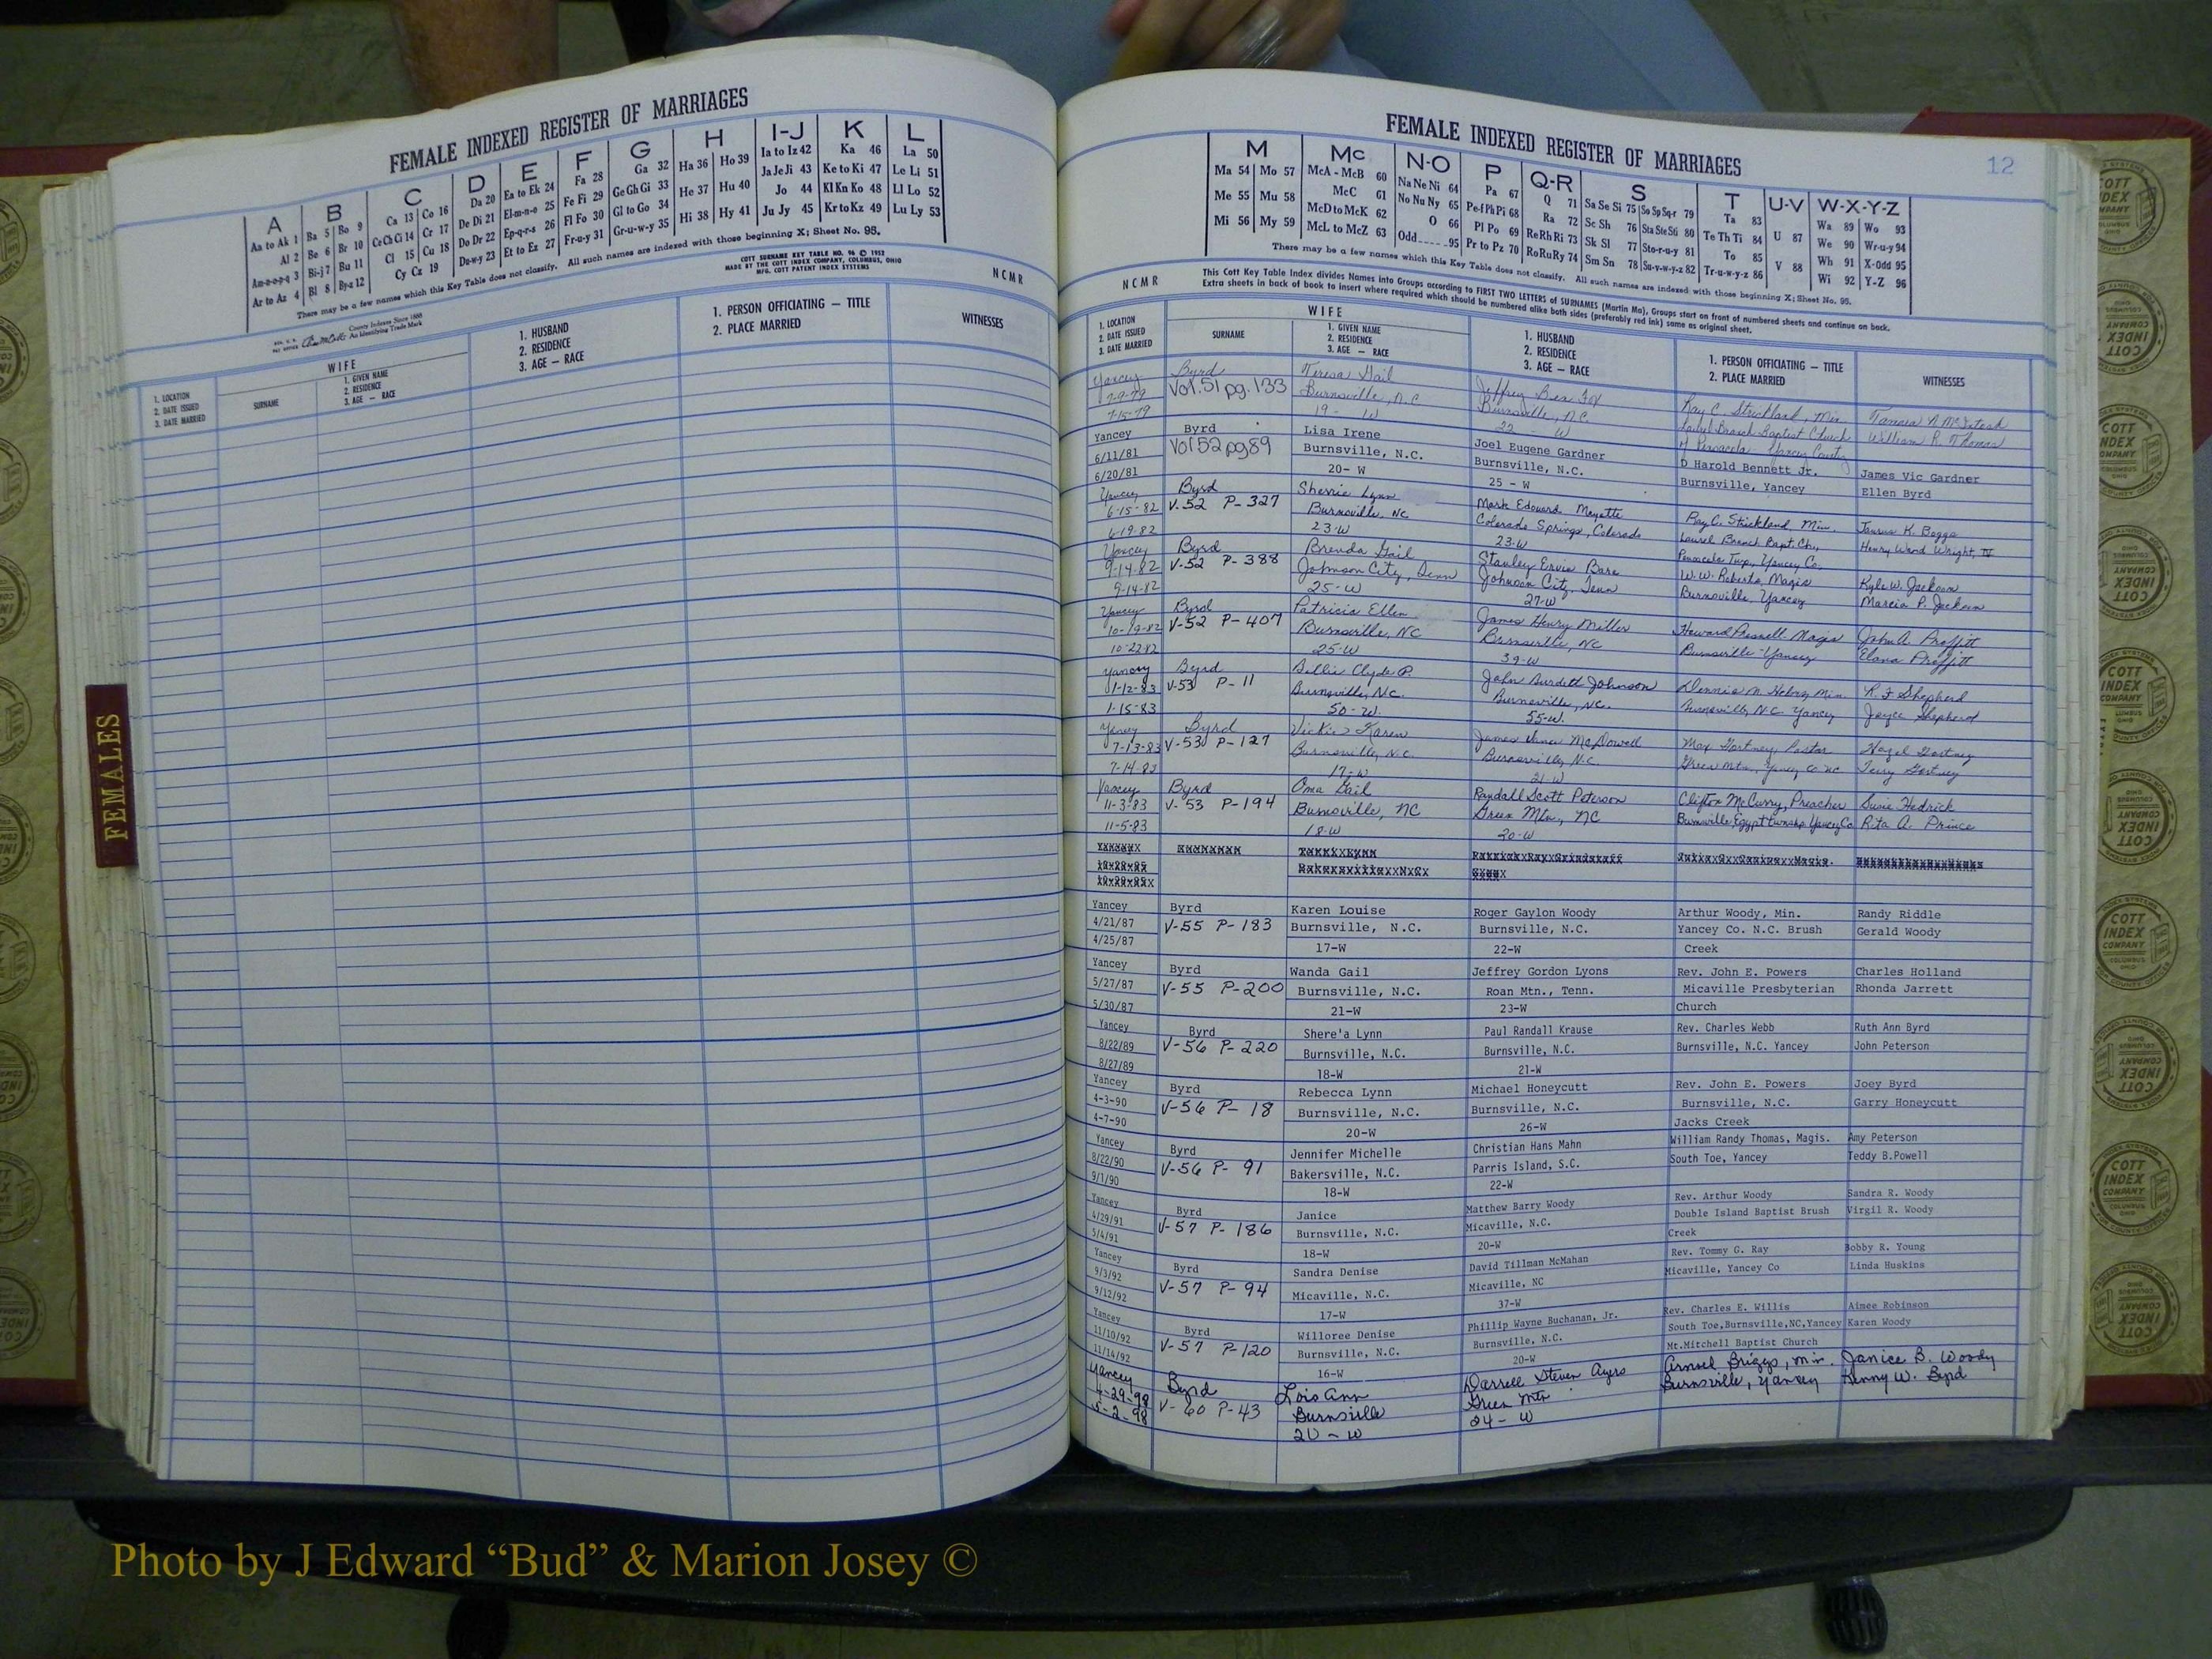 FEMALE INDEXED REGISTER OF MARRIAGES
A B C D E F G H I-J K L
Aa to Ak 1 Ba 5 Bo 9 Ca 13 Co 16 Da 20 Ea to Ek 24 Fa 28 Ga 32 Ha 36 Ho 39 Ia to Iz 42 Ka 46 La 50
Al 2 Be 6 Br 10 Ce Ch Ci 14 Cr 17 De Di 21 El-m-n-o 25 Fe Fi 29 Ge Gh Gi 33 He 37 Hu 40 Ja Je Ji 43 Ke to Ki 47 Le Li 51
Am-n-o-p-q 3 Bi-j 7 Bu 11 Cl 15 Cu 18 Do Dr 22 Ep-q-r-s 26 Fl Fo 30 Gl to Go 34 Hi 38 Hy 41 Jo 44 Kl Kn Ko 48 Ll Lo 52
Ar to Az 4 Bl 8 By-z 12 Cy Cz 19 Du-w-y 23 Et to Ez 27 Fr-u-y 31 Gr-u-w-y 35 Ju Jy 45 Kr to Kz 49 Lu Ly 53
There may be a few names which this Key Table does not classify. All such names are indexed with those beginning X; Sheet No. 95.
COTT SURNAME KEY TABLE NO. 96 © 1952
MADE BY THE COTT INDEX COMPANY, COLUMBUS, OHIO
MFG. COTT PATENT INDEX SYSTEMS
NCMR
County Indexes Since 1888
An Identifying Trade Mark
1. LOCATION
2. DATE ISSUED
3. DATE MARRIED
WIFE
SURNAME
1. GIVEN NAME
2. RESIDENCE
3. AGE — RACE
1. HUSBAND
2. RESIDENCE
3. AGE — RACE
1. PERSON OFFICIATING — TITLE
2. PLACE MARRIED
WITNESSES
FEMALES
FEMALE INDEXED REGISTER OF MARRIAGES
12
M Mc N-O P Q-R S T U-V W-X-Y-Z
Ma 54 Mo 57 McA - McB 60 Na Ne Ni 64 Pa 67 Q 71 Sa Se Si 75 So Sp Sq-r 79 Ta 83 Wa 89 Wo 93
Me 55 Mu 58 McC 61 No Nu Ny 65 Pe-f Ph Pi 68 Ra 72 Sc Sh 76 Sta Ste Sti 80 Te Th Ti 84 U 87 We 90 Wr-u-y 94
Mi 56 My 59 McD to McK 62 O 66 Pl Po 69 Re Rh Ri 73 Sk Sl 77 Sto-r-u-y 81 To 85 Wh 91 X-Odd 95
McL to McZ 63 Odd 95 Pr to Pz 70 Ro Ru Ry 74 Sm Sn 78 Su-v-w-y-z 82 Tr-u-w-y-z 86 V 88 Wi 92 Y-Z 96
There may be a few names which this Key Table does not classify. All such names are indexed with those beginning X; Sheet No. 95.
NCMR
This Cott Key Table Index divides Names into Groups according to FIRST TWO LETTERS of SURNAMES (Martin Ma), Groups start on front of numbered sheets and continue on back.
Extra sheets in back of book to insert where required which should be numbered alike both sides (preferably red ink) same as original sheet.
1. LOCATION
2. DATE ISSUED
3. DATE MARRIED
WIFE
SURNAME
1. GIVEN NAME
2. RESIDENCE
3. AGE — RACE
1. HUSBAND
2. RESIDENCE
3. AGE — RACE
1. PERSON OFFICIATING — TITLE
2. PLACE MARRIED
WITNESSES
Yancey Byrd Teresa Gail Jeffrey Fox Ray C. Strickland, Min.
7-9-79 Vol. 51 pg. 133 Burnsville, N.C. Burnsville, N.C. Laurel Branch Baptist Church William R. Thomas
7-15-79 19 - W 22 - W Pensacola Yancey County
Yancey Byrd Lisa Irene Joel Eugene Gardner D Harold Bennett Jr. James Vic Gardner
6/11/81 Vol 52 pg 89 Burnsville, N.C. Burnsville, N.C. Burnsville, Yancey Ellen Byrd
6/20/81 20- W 25 - W
Yancey Byrd Sherrie Lynn Mark Edouard Ray C. Strickland Min.
6-15-82 V.52 P-327 Burnsville, NC Colorado Springs, Colorado Laurel Branch Bapt. Ch., Henry Ward Wright, IV
6-19-82 23-W 23-W Pensacola Twp., Yancey Co.
Yancey Byrd Brenda Gail Stanley Ervin Bare W.W. Roberts, Magis Kyle W. Jackson
9-14-82 V-52 P-388 Johnson City, Tenn Johnson City, Tenn Burnsville, Yancey Marcia P. Jackson
9-14-82 25-W 27-W
Yancey Byrd Patricia Ellen James Henry Miller Howard Presnell Magis John A. Proffitt
10-19-82 V-52 P-407 Burnsville, NC Burnsville, NC Burnsville-Yancey Elana Proffitt
10-22-82 25-W 39-W
Yancey Byrd Billie Clyde P. John Burdett Johnson Dennis M. Min. R. F Shepherd
1-12-83 V-53 P-11 Burnsville, N.C. Burnsville, N.C. Burnsville, N.C. Yancey Joyce Shepherd
1-15-83 50-W. 55-W.
Yancey Byrd Vickie Karen James Vance McDowell Max Pastor Hazel
7-13-83 V-53 P-127 Burnsville, N.C. Burnsville, N.C. Green Mtn., Yancey Co NC Terry
7-14-83 17-W 21-W
Yancey Byrd Oma Gail Randall Scott Peterson Clifton McCurry, Preacher Susie Hedrick
11-3-83 V-53 P-194 Burnsville, NC Green Mtn, NC Burnsville Egypt township Yancey Co Rita A. Prince
11-5-83 18-W 20-W
Yancey Byrd Karen Louise Roger Gaylon Woody Arthur Woody, Min. Randy Riddle
4/21/87 V-55 P-183 Burnsville, N.C. Burnsville, N.C. Yancey Co. N.C. Brush Gerald Woody
4/25/87 17-W 22-W Creek
Yancey Byrd Wanda Gail Jeffrey Gordon Lyons Rev. John E. Powers Charles Holland
5/27/87 V-55 P-200 Burnsville, N.C. Roan Mtn., Tenn. Micaville Presbyterian Rhonda Jarrett
5/30/87 21-W 23-W Church
Yancey Byrd Shere'a Lynn Paul Randall Krause Rev. Charles Webb Ruth Ann Byrd
8/22/89 V-56 P-220 Burnsville, N.C. Burnsville, N.C. Burnsville, N.C. Yancey John Peterson
8/27/89 18-W 21-W
Yancey Byrd Rebecca Lynn Michael Honeycutt Rev. John E. Powers Joey Byrd
4-3-90 V-56 P-18 Burnsville, N.C. Burnsville, N.C. Burnsville, N.C. Garry Honeycutt
4-7-90 20-W 26-W Jacks Creek
Yancey Byrd Jennifer Michelle Christian Hans Mahn William Randy Thomas, Magis. Amy Peterson
8/22/90 V-56 P-91 Bakersville, N.C. Parris Island, S.C. South Toe, Yancey Teddy B.Powell
9/1/90 18-W 22-W
Yancey Byrd Janice Matthew Barry Woody Rev. Arthur Woody Sandra R. Woody
4/29/91 V-57 P-186 Burnsville, N.C. Micaville, N.C. Double Island Baptist Brush Virgil R. Woody
5/4/91 18-W 20-W Creek
Yancey Byrd Sandra Denise David Tillman McMahan Rev. Tommy G. Ray Bobby R. Young
9/3/92 V-57 P-94 Micaville, N.C. Micaville, NC Micaville, Yancey Co Linda Huskins
9/12/92 17-W 37-W
Yancey Byrd Willoree Denise Phillip Wayne Buchanan, Jr. Rev. Charles E. Willis Aimee Robinson
11/10/92 V-57 P-120 Burnsville, N.C. Burnsville, N.C. South Toe,Burnsville,NC,Yancey Karen Woody
11/14/92 16-W 20-W Mt.Mitchell Baptist Church
Yancey Byrd Lois Ann Darrell Steven Ayers Arnsel Briggs, Min. Janice B. Woody
4-29-98 V-60 P-43 Burnsville Green Mtn Burnsville, Yancey Kenny W. Byrd
5-2-98 20-W 24-W
Photo by J Edward “Bud” & Marion Josey ©